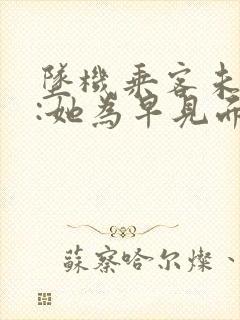 墜機乘客未
:她為早見
蘇察哈尔燦、